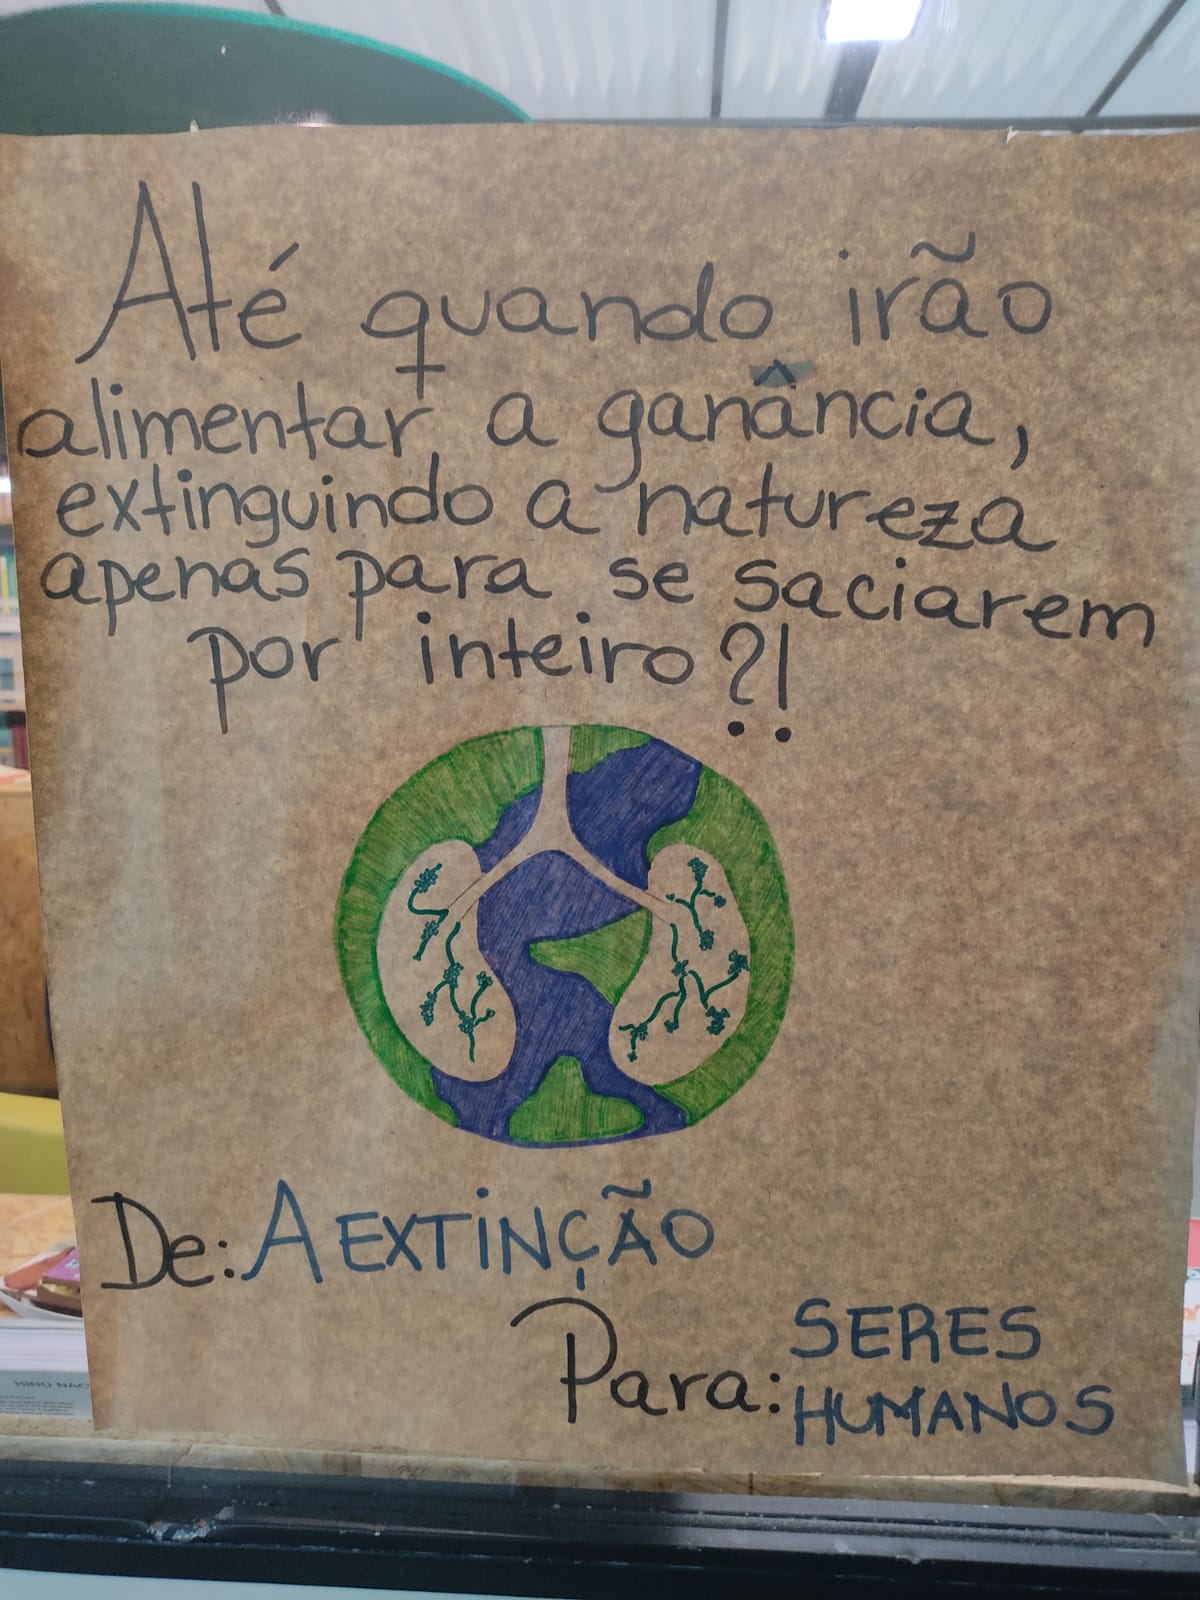 Até quando irão
alimentar a ganância,
extinguindo a natureza
apenas para se saciarem
por inteiro?!
De: A EXTINÇÃO
Para: SERES
HUMANOS